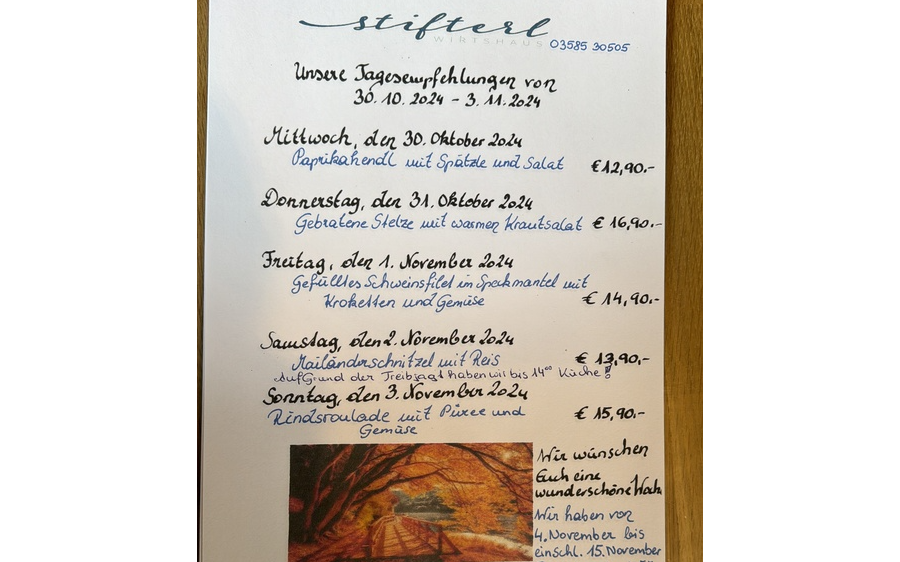 stifterl
WIRTSHAUS 03585 30505
Unsere Tagesempfehlungen von
30.10.2024 - 3.11.2024
Mittwoch, den 30. Oktober 2024
Paprikahendl mit Spätzle und Salat € 12,90.-
Donnerstag, den 31. Oktober 2024
Gebratene Stelze mit warmen Krautsalat € 16,90.-
Freitag, den 1. November 2024
Gefülltes Schweinsfilet im Speckmantel mit
Kroketten und Gemüse € 14,90.-
Samstag, den 2. November 2024
Mailänderschnitzel mit Reis € 13,90.-
Auf Grund der Treibjagt haben wir bis 14⁰⁰ Küche!
Sonntag, den 3. November 2024
Rindsroulade mit Püree und € 15,90.-
Gemüse
Wir wünschen
Euch eine
wunderschöne Woche
Wir haben von
4. November bis
einschl. 15. November